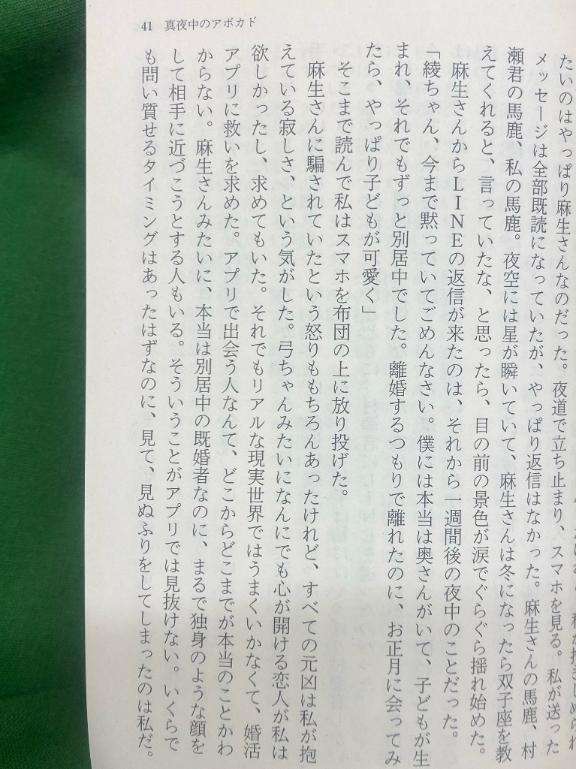 41 真夜中のアボカド
たいのはやっぱり麻生さんなのだった。夜道で立ち止まり、スマホを見る。私が送った
メッセージは全部既読になっていたが、やっぱり返信はなかった。麻生さんの馬鹿、村
瀬君の馬鹿、私の馬鹿。夜空には星が瞬いていて、麻生さんは冬になったら双子座を教
えてくれると、言っていたな、と思ったら、目の前の景色が涙でぐらぐら揺れ始めた。
麻生さんからLINEの返信が来たのは、それから一週間後の夜中のことだった。
「綾ちゃん、今まで黙っていてごめんなさい。僕には本当は奥さんがいて、子どもが生
まれ、それでもずっと別居中でした。離婚するつもりで離れたのに、お正月に会ってみ
たら、やっぱり子どもが可愛く」
そこまで読んで私はスマホを布団の上に放り投げた。
麻生さんに騙されていたという怒りももちろんあったけれど、すべての元凶は私が抱
えている寂しさ、という気がした。弓ちゃんみたいになんにでも心が開ける恋人が私は
欲しかったし、求めてもいた。それでもリアルな現実世界ではうまくいかなくて、婚活
アプリに救いを求めた。アプリで出会う人なんて、どこからどこまでが本当のことかわ
からない。麻生さんみたいに、本当は別居中の既婚者なのに、まるで独身のような顔を
して相手に近づこうとする人もいる。そういうことがアプリでは見抜けない。いくらで
も問い質せるタイミングはあったはずなのに、見て、見ぬふりをしてしまったのは私だ。